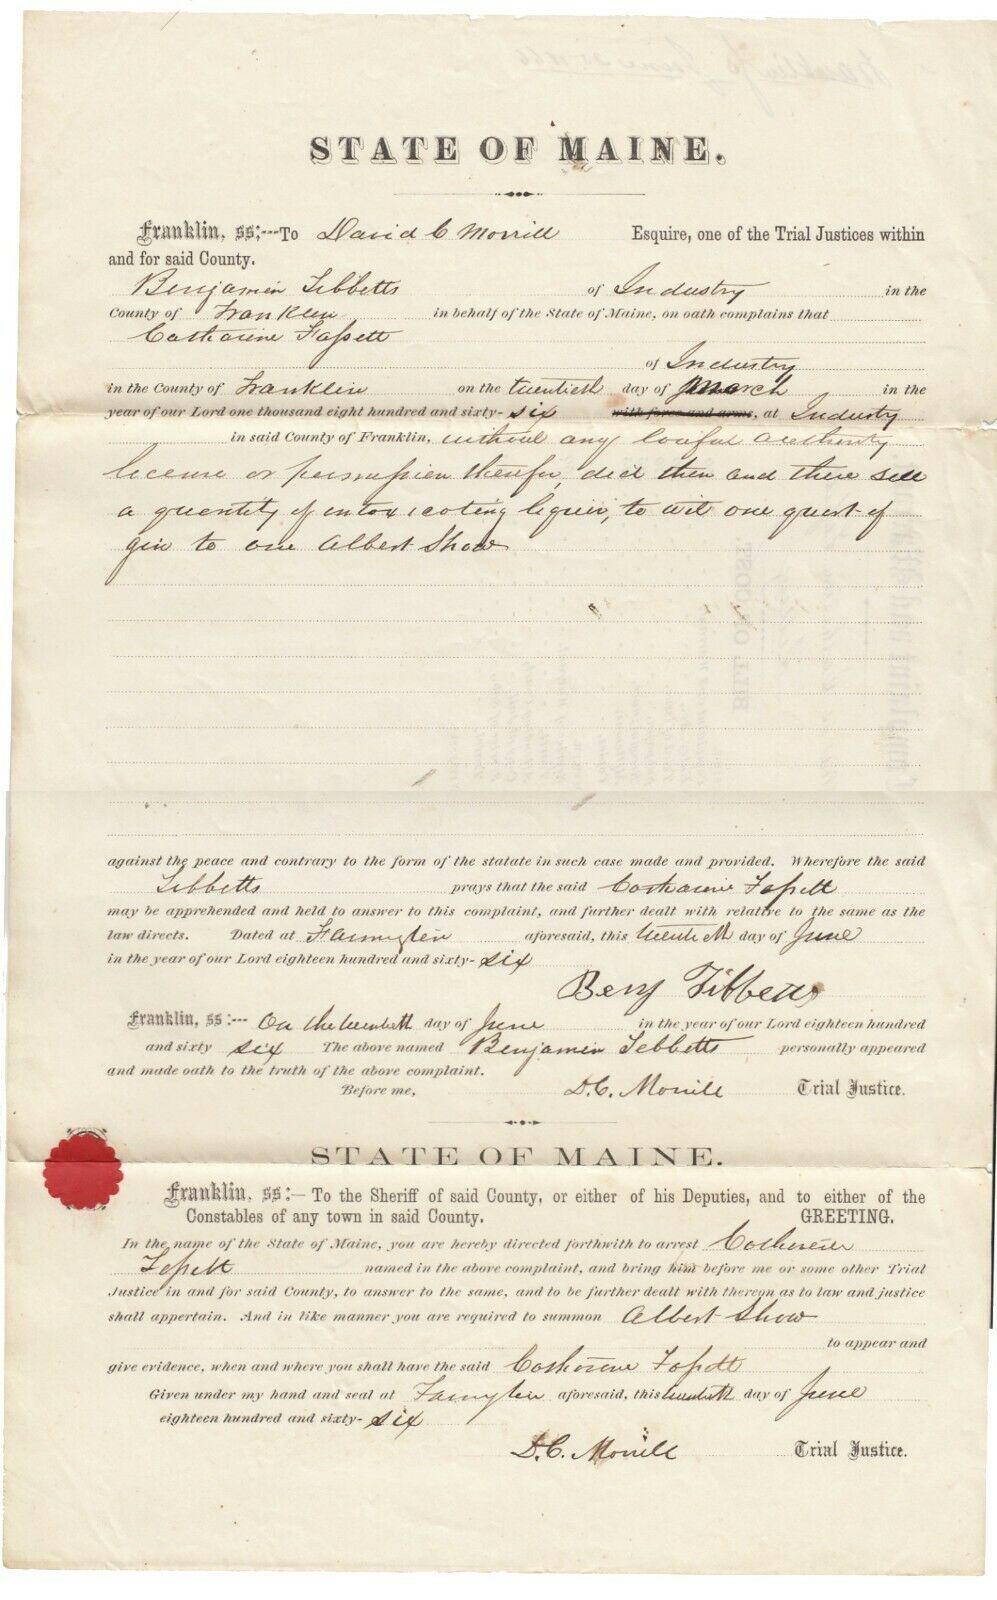 STATE OF MAINE.
Franklin, ss;---To David C Morrill Esquire, one of the Trial Justices within
and for said County.
Benjamin Tibbetts of Industry in the
County of Franklin in behalf of the State of Maine, on oath complains that
Catharine Fassett
of Industry
in the County of Franklin on the twentieth day of March in the
year of our Lord one thousand eight hundred and sixty- six with force and arms, at Industry
in said County of Franklin, without any lawful authority
license or permission therefor, did then and there sell
a quantity of intoxicating liquir, to wit one quart of
gin to one Albert Shaw
against the peace and contrary to the form of the statute in such case made and provided. Wherefore the said
Tibbetts prays that the said Catharine Fassett
may be apprehended and held to answer to this complaint, and further dealt with relative to the same as the
law directs. Dated at Farmington aforesaid, this twentieth day of June
in the year of our Lord eighteen hundred and sixty- six
Benj Tibbetts
Franklin, ss:--- On the twentieth day of June in the year of our Lord eighteen hundred
and sixty six The above named Benjamin Tebbetts personally appeared
and made oath to the truth of the above complaint.
Before me, D.C. Morrill Trial Justice.
STATE OF MAINE.
Franklin, ss:— To the Sheriff of said County, or either of his Deputies, and to either of the
Constables of any town in said County. GREETING.
In the name of the State of Maine, you are hereby directed forthwith to arrest Catharine
Fassett named in the above complaint, and bring him before me or some other Trial
Justice in and for said County, to answer to the same, and to be further dealt with thereon as to law and justice
shall appertain. And in like manner you are required to summon Albert Shaw
to appear and
give evidence, when and where you shall have the said Catharine Fassett
Given under my hand and seal at Farmington aforesaid, this twentieth day of June
eighteen hundred and sixty- six
D.C. Morrill Trial Justice.